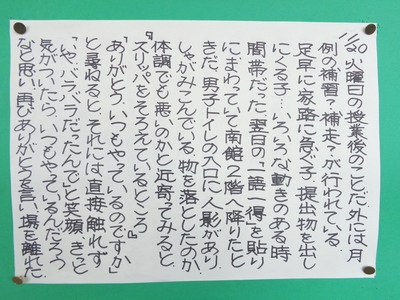 11/20 火曜日の授業後のことだ。外には、月
例の補習?補走?が行われている。
足早に家路に急ぐ子、提出物を出し
にくる子…いろいろな動きのある時
間帯だった。翌日の「一語一得」を貼り
にまわっていて南館2階へ降りたと
きだ。男子トイレの入口に人影があり
しゃがみこんでいる。物を落としたのか、
体調でも悪いのかと近寄ってみると、
『スリッパをそろえているところ』
「ありがとう。いつもやっているのですか」
と尋ねると、それには直接触れず
「いや、バラバラだったんで」と笑顔。きっと
気がついたら、いつもやっているんだろう
なと思い、再びありがとうを言い、場を離れた。